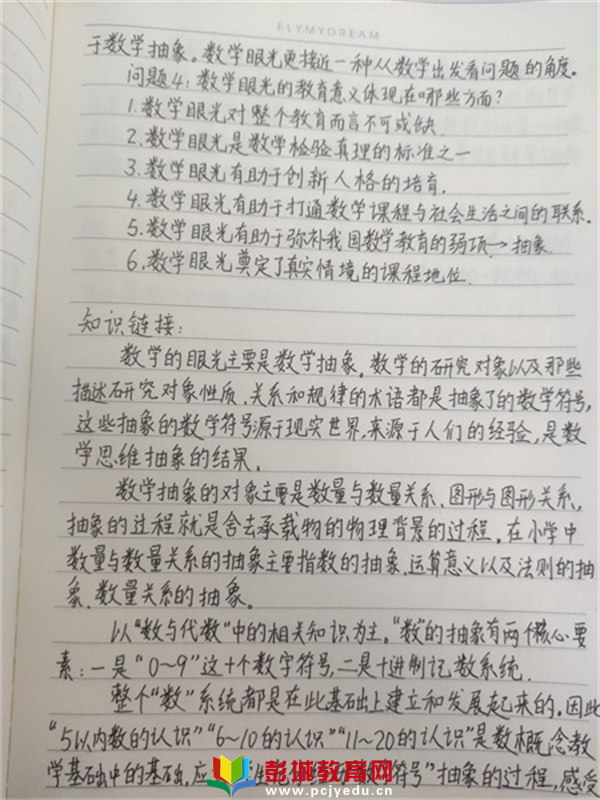 FLYMYDREAM
于数学抽象。数学眼光更接近一种从数学出发看问题的角度。
问题4:数学眼光的教育意义体现在哪些方面?
1.数学眼光对整个教育而言不可或缺
2.数学眼光是数学检验真理的标准之一
3.数学眼光有助于创新人格的培育.
4.数学眼光有助于打通数学课程与社会生活之间的联系。
5.数学眼光有助于弥补我国数学教育的弱项→抽象
6.数学眼光奠定了真实情境的课程地位.
知识链接:
数学的眼光主要是数学抽象。数学的研究对象以及那些
描述研究对象性质、关系和规律的术语都是抽象了的数学符号,
这些抽象的数学符号源于现实世界,来源于人们的经验,是数
学思维抽象的结果。
数学抽象的对象主要是数量与数量关系、图形与图形关系,
抽象的过程就是舍去承载物的物理背景的过程。在小学中
数量与数量关系的抽象主要指数的抽象、运算意义以及法则的抽
象、数量关系的抽象。
以“数与代数”中的相关知识为主。“数”的抽象有两个核心要
素:一是“0~9”这十个数字符号,二是十进制记数系统.
整个“数”系统都是在此基础上建立和发展起来的,因此
“5以内数的认识”“6~10的认识”“11~20的认识”是数概念教
学基础中的基础,应 生 符号”抽象的过程,感受
彭城教育网
www.pcjyedu.cn